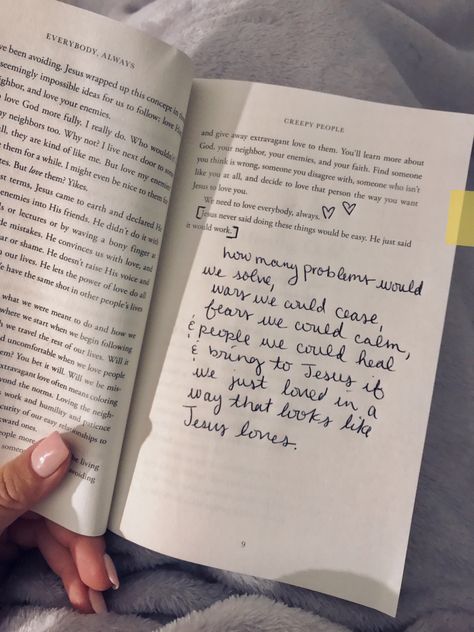 EVERYBODY, ALWAYS
've been avoiding. Jesus wrapped up this concept in
seemingly impossible ideas for us to follow; love
and love your enemies.
love God more fully. I really do. Who wouldn't
neighbors too. Why not? I live next door to
they are kind of like me. But love my
them for a while. I might even be nice to them for
But love them? Yikes.
terms, Jesus came to earth and declared He
enemies into His friends. He didn't do it with
or lectures or by waving a bony finger a
mistakes. He convinces us with love, and
or shame. He doesn't raise His voice and
our lives. He lets the power of love do all
have the same shot in other people's lives
what we were meant to do and how we
where we start when we begin following
we travel the rest of our lives. Will it
and uncomfortable when we love people
You bet it will. Will we be mis-
extravagant love often means coloring
beyond the norms. Loving the neigh-
work and humility and patience
of our easy relationships to
ones.
be living
avoiding
CREEPY PEOPLE
and give away extravagant love to them. You'll learn more about
God, your neighbor, your enemies, and your faith. Find someone
you think is wrong, someone you disagree with, someone who isn't
like you at all, and decide to love that person the way you want
Jesus to love you.
We need to love everybody, always. ♡ ♡
[Jesus never said doing these things would be easy. He just said
it would work.]
how many problems would
we solve,
wars we could cease,
fears we could calm,
& people we could heal
& bring to Jesus if
we just loved in a
way that looks like
Jesus loves.
9